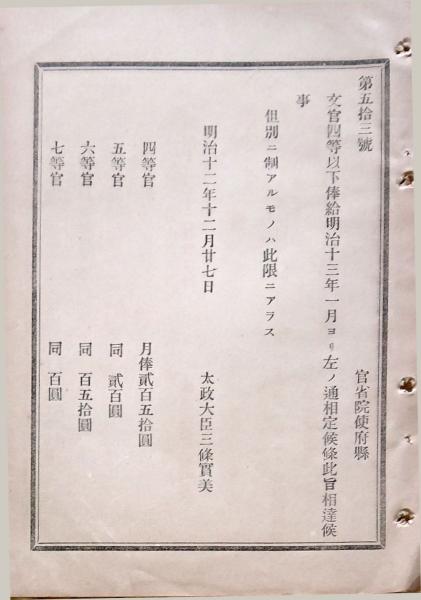 第五拾三號
官省院使府縣
文官四等以下俸給明治十三年一月ヨリ左ノ通相定候條此旨相達候
事
但別ニ制アルモノハ此限ニアラス
明治十二年十二月廿七日
太政大臣三條實美
四等官 月俸貳百五拾圓
五等官 同 貳百圓
六等官 同 百五拾圓
七等官 同 百圓